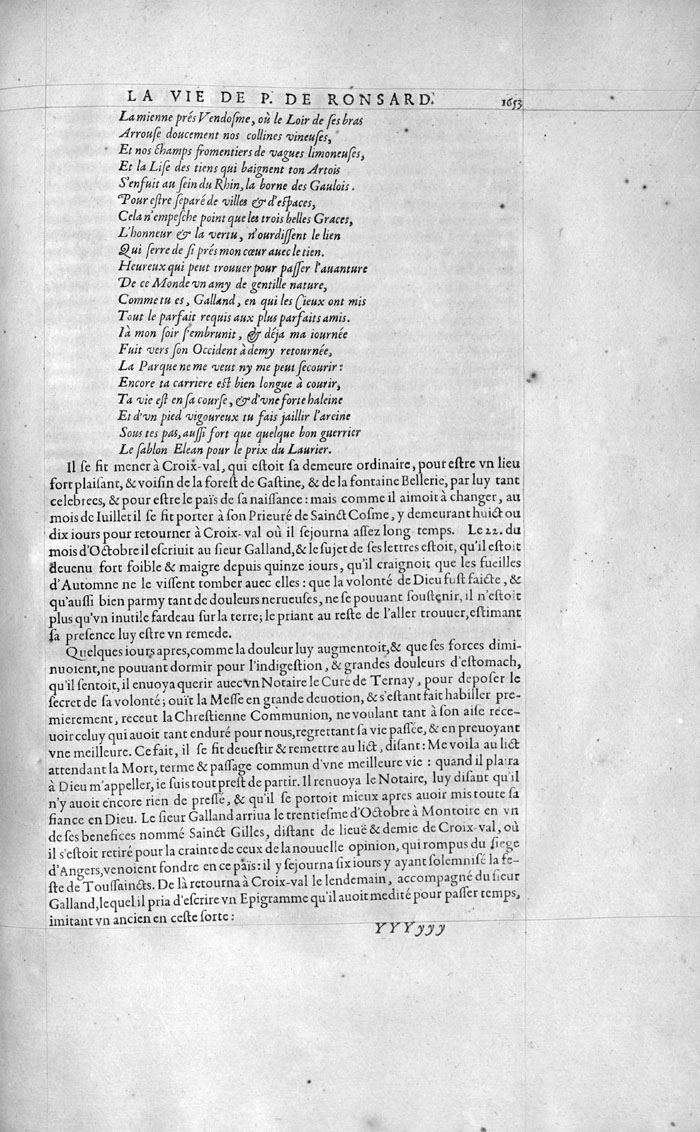 LA VIE DE P. DE RONSARD. 1653
La mienne prés Vendosme, où le Loir de ses bras
Arrouse doucement nos collines vineuses,
Et nos champs fromentiers de vagues limoneuses,
Et la Lise des tiens qui baignent ton Artois
S'enfuit au sein du Rhin, la borne des Gaulois.
Pour estre separé de villes & d'espaces,
Cela n'empesche point que les trois belles Graces,
L'honneur & la vertu, n'ourdissent le lien
Qui serre de si prés mon cœur auec le tien.
Heureux qui peut trouuer pour passer l'auanture
De ce Monde vn amy de gentille nature,
Comme tu es, Galland, en qui les Cieux ont mis
Tout le parfait requis aux plus parfaits amis.
Ià mon soir s'embrunit, & déja ma iournée
Fuit vers son Occident à demy retournée,
La Parque ne me veut ny me peut secourir:
Encore ta carriere est bien longue à courir,
Ta vie est en sa course, & d'vne forte haleine
Et d'vn pied vigoureux tu fais jaillir l'areine
Sous tes pas, aussi fort que quelque bon guerrier
Le sablon Elean pour le prix du Laurier.
Il se fit mener à Croix-val, qui estoit sa demeure ordinaire, pour estre vn lieu
fort plaisant, & voisin de la forest de Gastine, & de la fontaine Bellerie, par luy tant
celebrees, & pour estre le païs de sa naissance: mais comme il aimoit à changer, au
mois de Iuillet il se fit porter à son Prieuré de Sainct Cosme, y demeurant huict ou
dix iours pour retourner à Croix-val où il sejourna assez long temps. Le 22. du
mois d'Octobre il escriuit au sieur Galland, & le sujet de ses lettres estoit, qu'il estoit
deuenu fort foible & maigre depuis quinze iours, qu'il craignoit que les fueilles
d'Automne ne le vissent tomber auec elles: que la volonté de Dieu fust faicte, &
qu'aussi bien parmy tant de douleurs nerueuses, ne se pouuant soustenir, il n'estoit
plus qu'vn inutile fardeau sur la terre; le priant au reste de l'aller trouuer, estimant
sa presence luy estre vn remede.
Quelques iours apres, comme la douleur luy augmentoit, & que ses forces dimi-
nuoient, ne pouuant dormir pour l'indigestion, & grandes douleurs d'estomach,
qu'il sentoit, il enuoya querir auec vn Notaire le Curé de Ternay, pour deposer le
secret de sa volonté; ouït la Messe en grande deuotion, & s'estant fait habiller pre-
mierement, receut la Chrestienne Communion, ne voulant tant à son aise rece-
uoir celuy qui auoit tant enduré pour nous, regrettant sa vie passée, & en preuoyant
vne meilleure. Ce fait, il se fit deuestir & remettre au lict, disant: Me voila au lict
attendant la Mort, terme & passage commun d'vne meilleure vie: quand il plaira
à Dieu m'appeller, ie suis tout prest de partir. Il renuoya le Notaire, luy disant qu'il
n'y auoit encore rien de pressé, & qu'il se portoit mieux apres auoir mis toute sa
fiance en Dieu. Le sieur Galland arriua le trentiesme d'Octobre à Montoire en vn
de ses benefices nommé Sainct Gilles, distant de lieuë & demie de Croix-val, où
il s'estoit retiré pour la crainte de ceux de la nouuelle opinion, qui rompus du siege
d'Angers, venoient fondre en ce païs: il y sejourna six iours y ayant solemnisé la fe-
ste de Toussaincts. De là retourna à Croix-val le lendemain, accompagné du sieur
Galland, lequel il pria d'escrire vn Epigramme qu'il auoit medité pour passer temps,
imitant vn ancien en ceste sorte:
YYYyyy